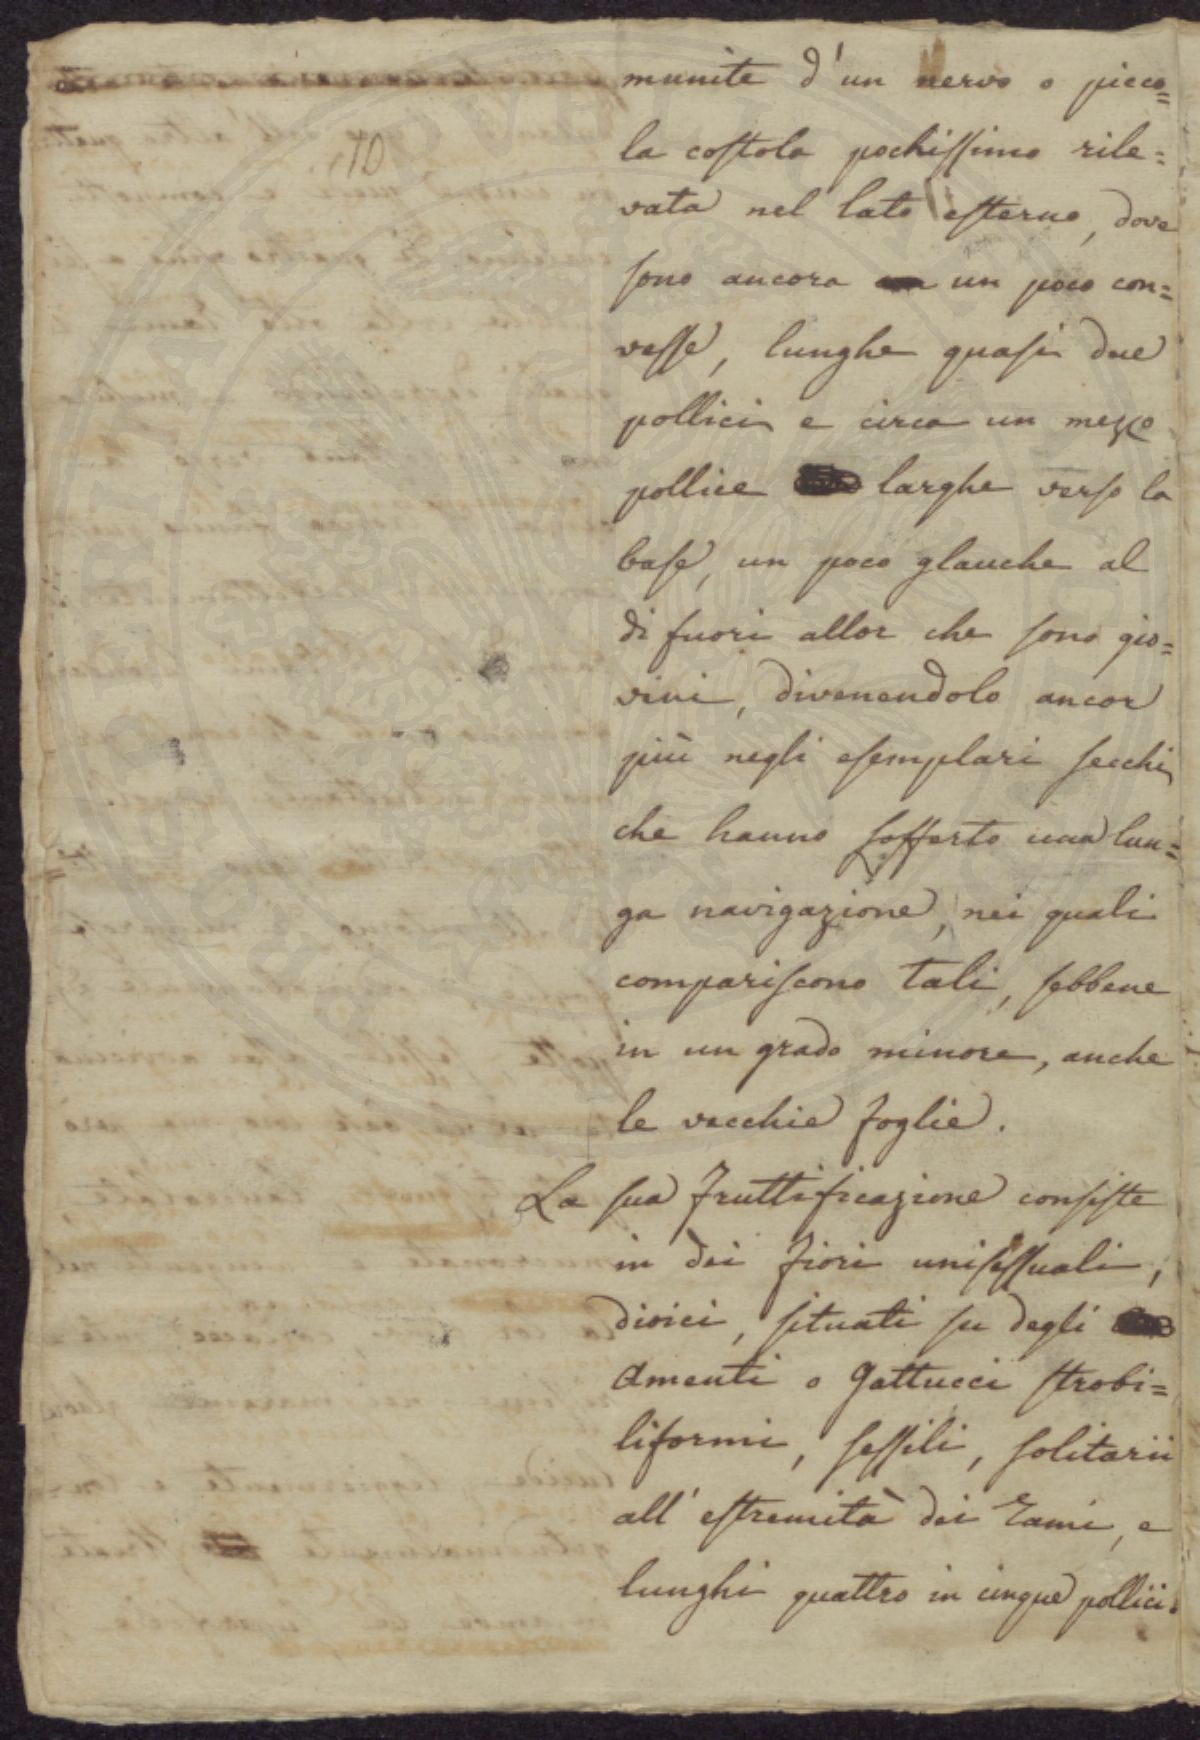 munite d'un nervo o picco=
la costola pochissimo rile=
vata nel lato esterno, dove
sono ancora un poco con=
vesse, lunghe quasi due
pollici e circa un mezzo
pollice larghe verso la
base, un poco glauche al
di fuori allor che sono gio=
vini, divenendolo ancor
più negli esemplari secchi
che hanno sofferto una lun=
ga navigazione, nei quali
compariscono tali, sebbene
in un grado minore, anche
le vecchie foglie.
La sua fruttificazione consiste
in dei fiori unisessuali,
dioici, situati su degli
Amenti o Gattucci strobi=
liformi, sessili, solitarii
all'estremità dei rami, e
lunghi quattro in cinque pollici.